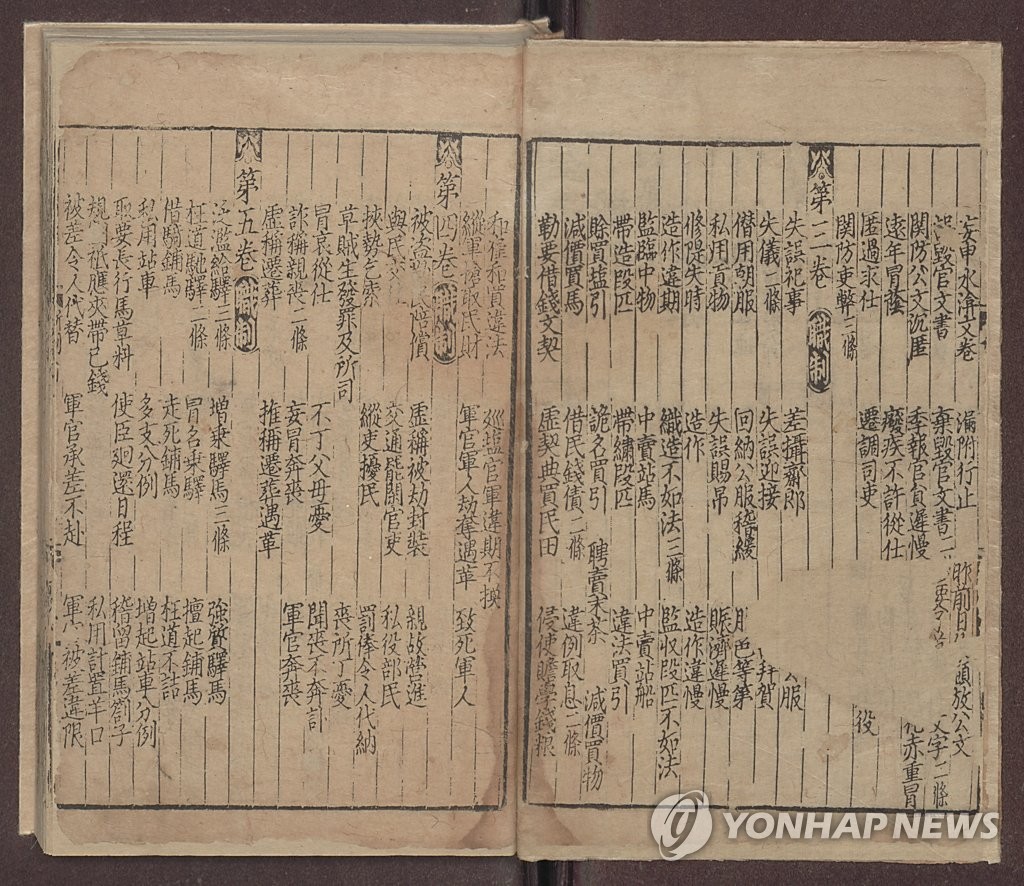 妄申水渰文卷 漏附行止
毀官文書 棄毀官文書二
關防公文沉匿 季報官員遲慢
遠年冒蔭 癈疾不許從仕
匿過求仕 遷調司吏 役
關防吏弊三條
第三卷 職制
失誤祀事 差攝齋郎 服
失儀二條 失誤迎接 拜賀
僣用胡服 回納公服稽緩 邑等第
私用貢物 失誤賜吊 賑濟遲慢
修隄失時 造作 造作違慢
造作違期 織造不如法三條 監收段匹不如法
監臨中物 中賣站馬 中賣站船
帶造段匹 帶繡段匹 違法買引
賒買塩引 詭名買引 聘賣末茶 減價買物
減價買馬 借民錢債二條 違例取息二條
勒要借錢文契 虛契典買民田 侵使贍學錢粮
和雇和買違法 廵塩官軍違期不換
縱軍搶取民財 軍官軍人劫奪遇革 致死軍人
第四卷 職制
被盗 民陪償 虛稱被劫封裝 親故營進
與民 交通罷閑官吏 私役部民
挾勢乞索 縱吏擾民 罰俸令人代納
草賊生發罪及所司
冒哀從仕 不丁父母憂 喪所丁憂
詐稱親喪二條 妄冒奔喪 聞喪不奔訃
虛稱遷葬 推稱遷葬遇革 軍官奔喪
第五卷 職制
泛濫給驛二條 增乗驛馬三條 強質驛馬
枉道馳驛二條 冒名乗驛 擅起鋪馬
借騎鋪馬 走死鋪馬 枉道不詰
私用站車 多支分例 增起站車分例
取要長行馬草料 使臣廻還日程 稽留鋪馬劄子
祗應夾帶己錢 私用計置羊口
被差令人代替 軍官承差不赴 軍 被差違限
昨前日
頭放公文
文字二條
赤重冒
YONHAP NEWS